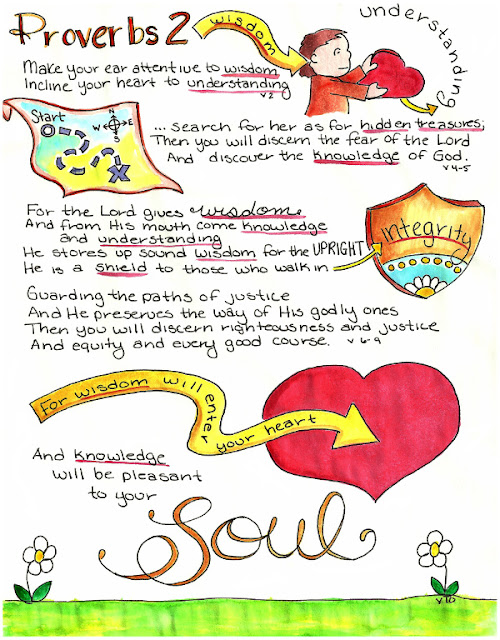 Proverbs 2
wisdom
understanding
Make your ear attentive to wisdom
Incline your heart to understanding
v 2
Start
N
W E
S
X
... search for her as for hidden treasures;
Then you will discern the fear of the Lord
And discover the knowledge of God.
v 4-5
For the Lord gives wisdom
And from His mouth come knowledge
and understanding
He stores up sound wisdom for the UPRIGHT
He is a shield to those who walk in
integrity
Guarding the paths of justice
And He preserves the way of His godly ones
Then you will discern righteousness and justice
And equity and every good course. v 6-9
For wisdom will enter your heart
And knowledge
will be pleasant
to your
Soul
v 10